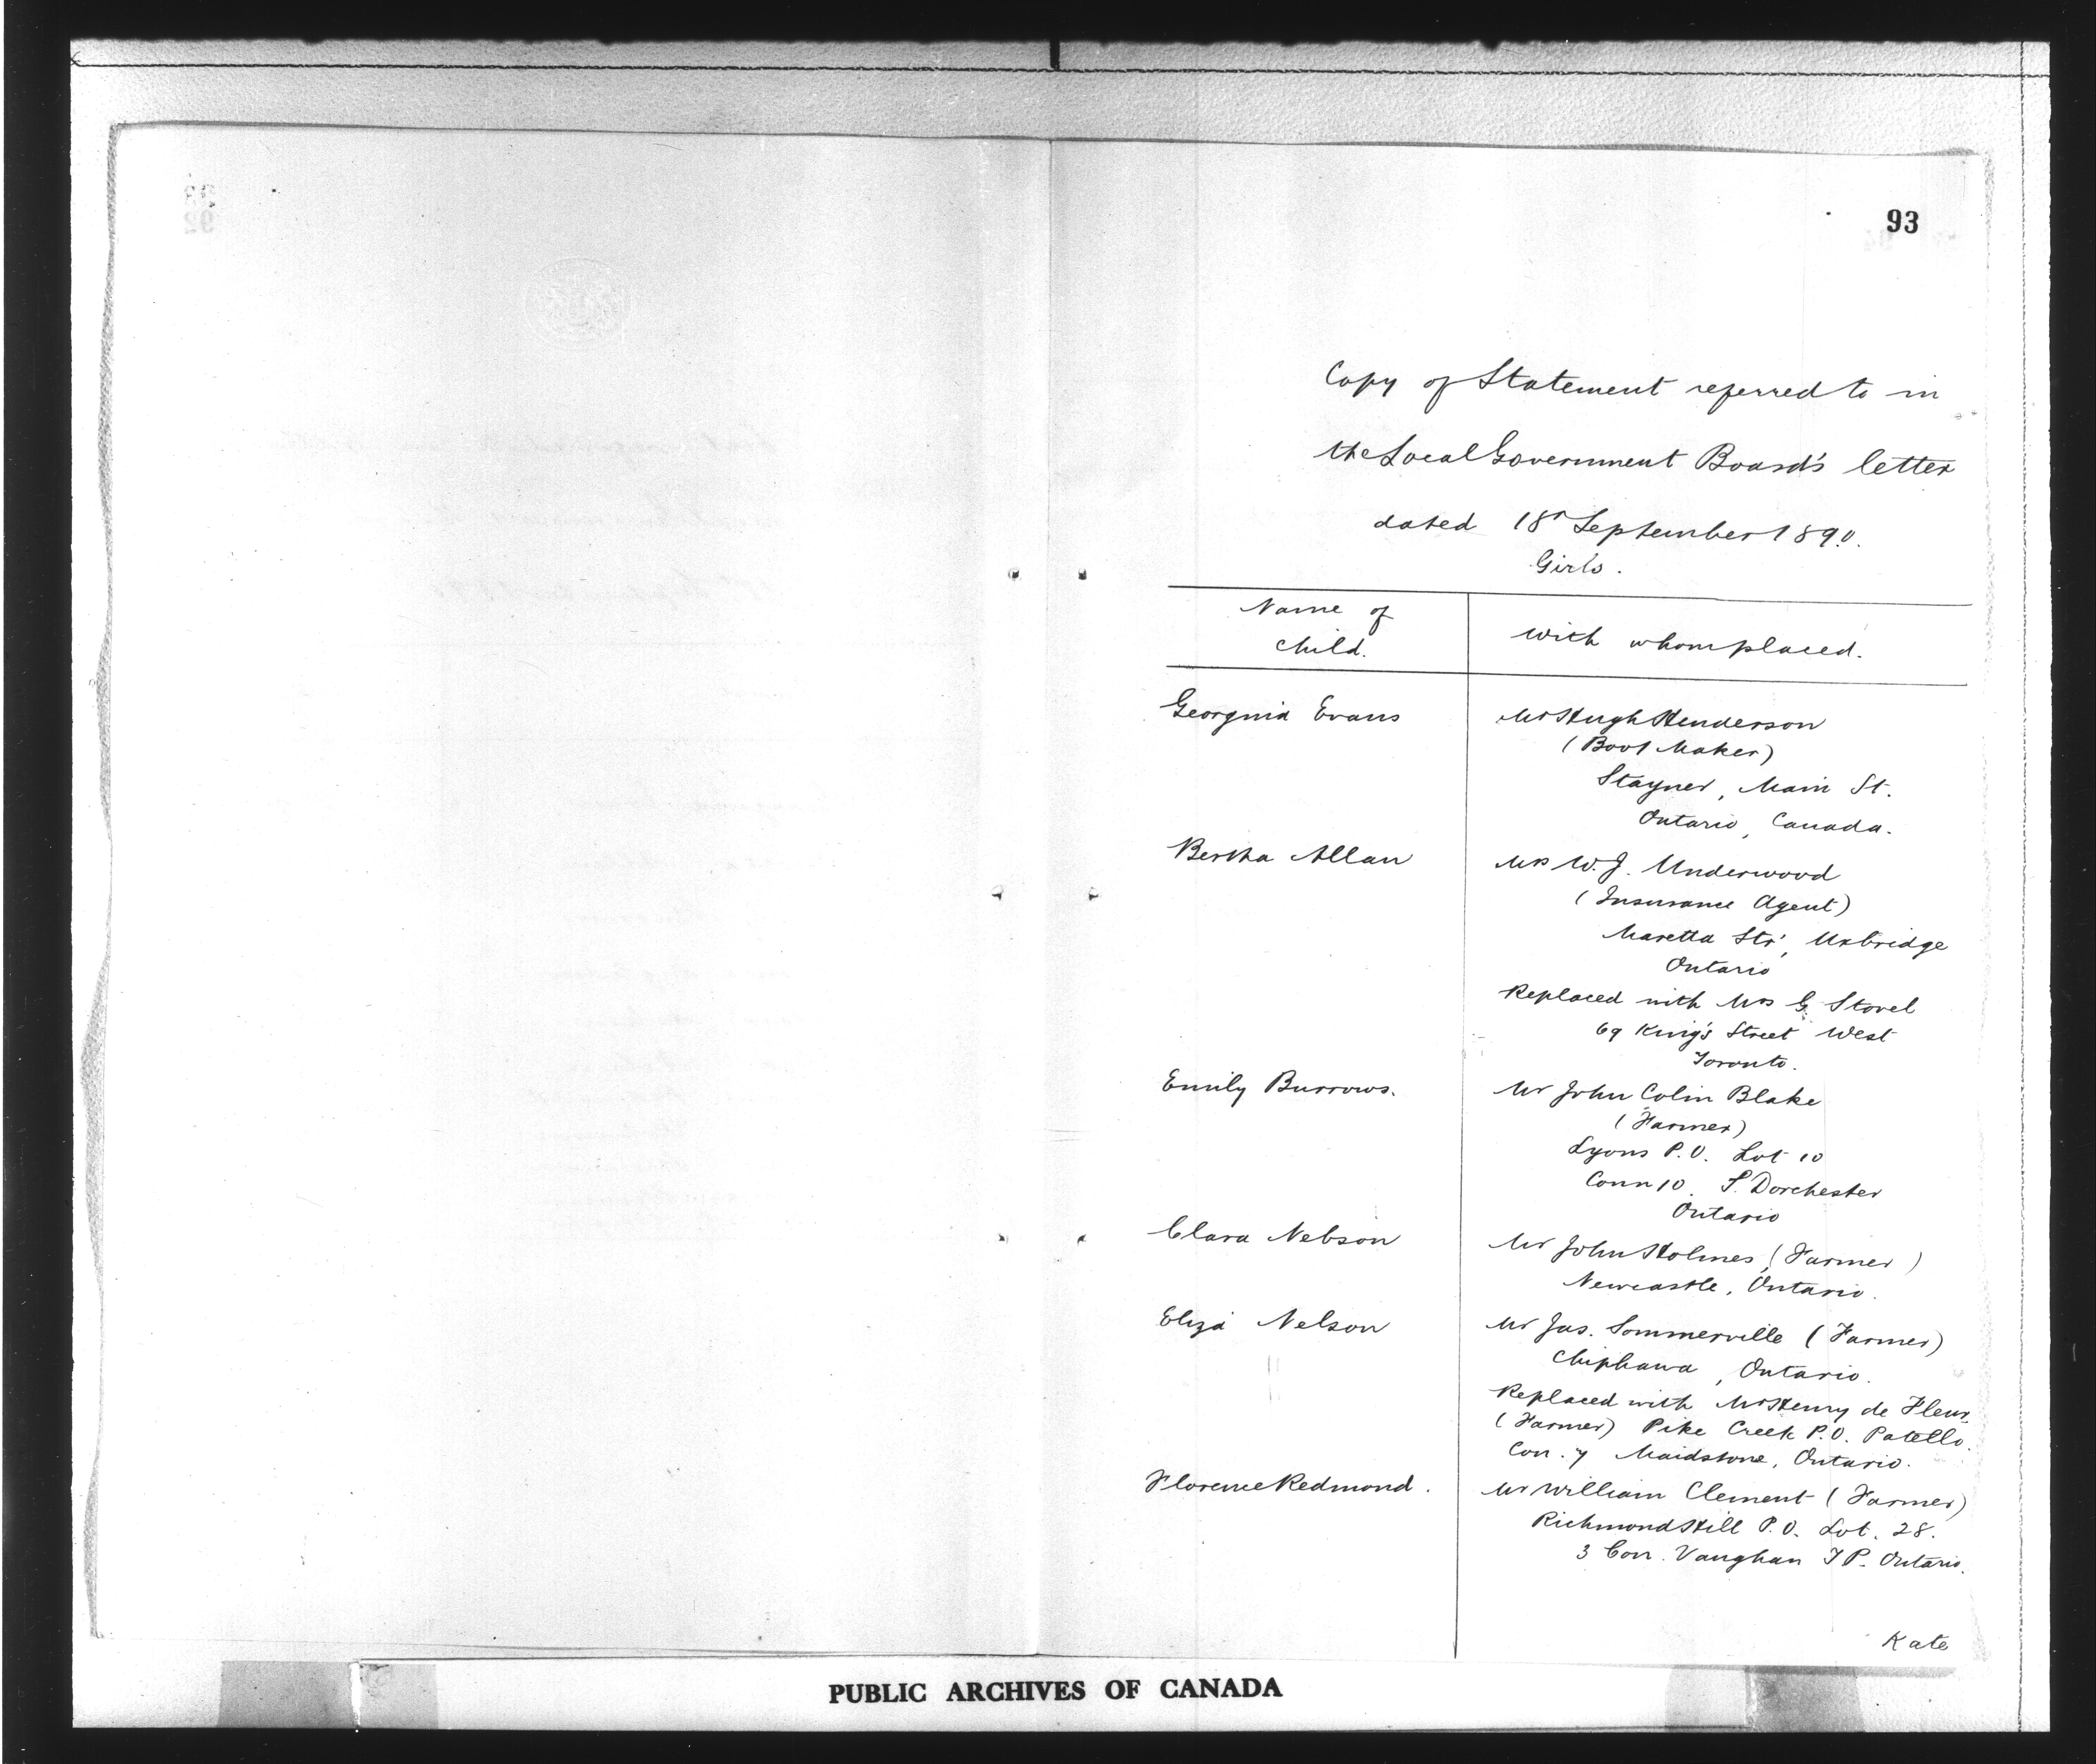 93
Copy of Statement referred to in
the Local Government Board's letter
dated 18th September 1890.
Girls.
Name of
child.
with whom placed.
Georgina Evans
Mr Hugh Henderson
(Boot Maker)
Stayner, Main St.
Ontario, Canada.
Bertha Allan
Mr W. J. Underwood
(Insurance Agent)
Maretta Str, Uxbridge
Ontario
Replaced with Mrs G. Stovel
69 King's Street West
Toronto.
Emily Burrows.
Mr John Colin Blake
(Farmer)
Lyons P.O. Lot 10
Conn 10. S. Dorchester
Ontario
Clara Nelson
Mr John Holmes, (Farmer)
Newcastle, Ontario.
Eliza Nelson
Mr Jas. Sommerville (Farmer)
Chiphawa, Ontario.
Replaced with Mr Henry de Fleur
(Farmer) Pike Creek P.O. Patello.
Con. 7 Maidstone, Ontario.
Florence Redmond.
Mr William Clement (Farmer)
Richmond Hill P.O. Lot. 28.
3 Con. Vaughan TP. Ontario.
Kate
PUBLIC ARCHIVES OF CANADA